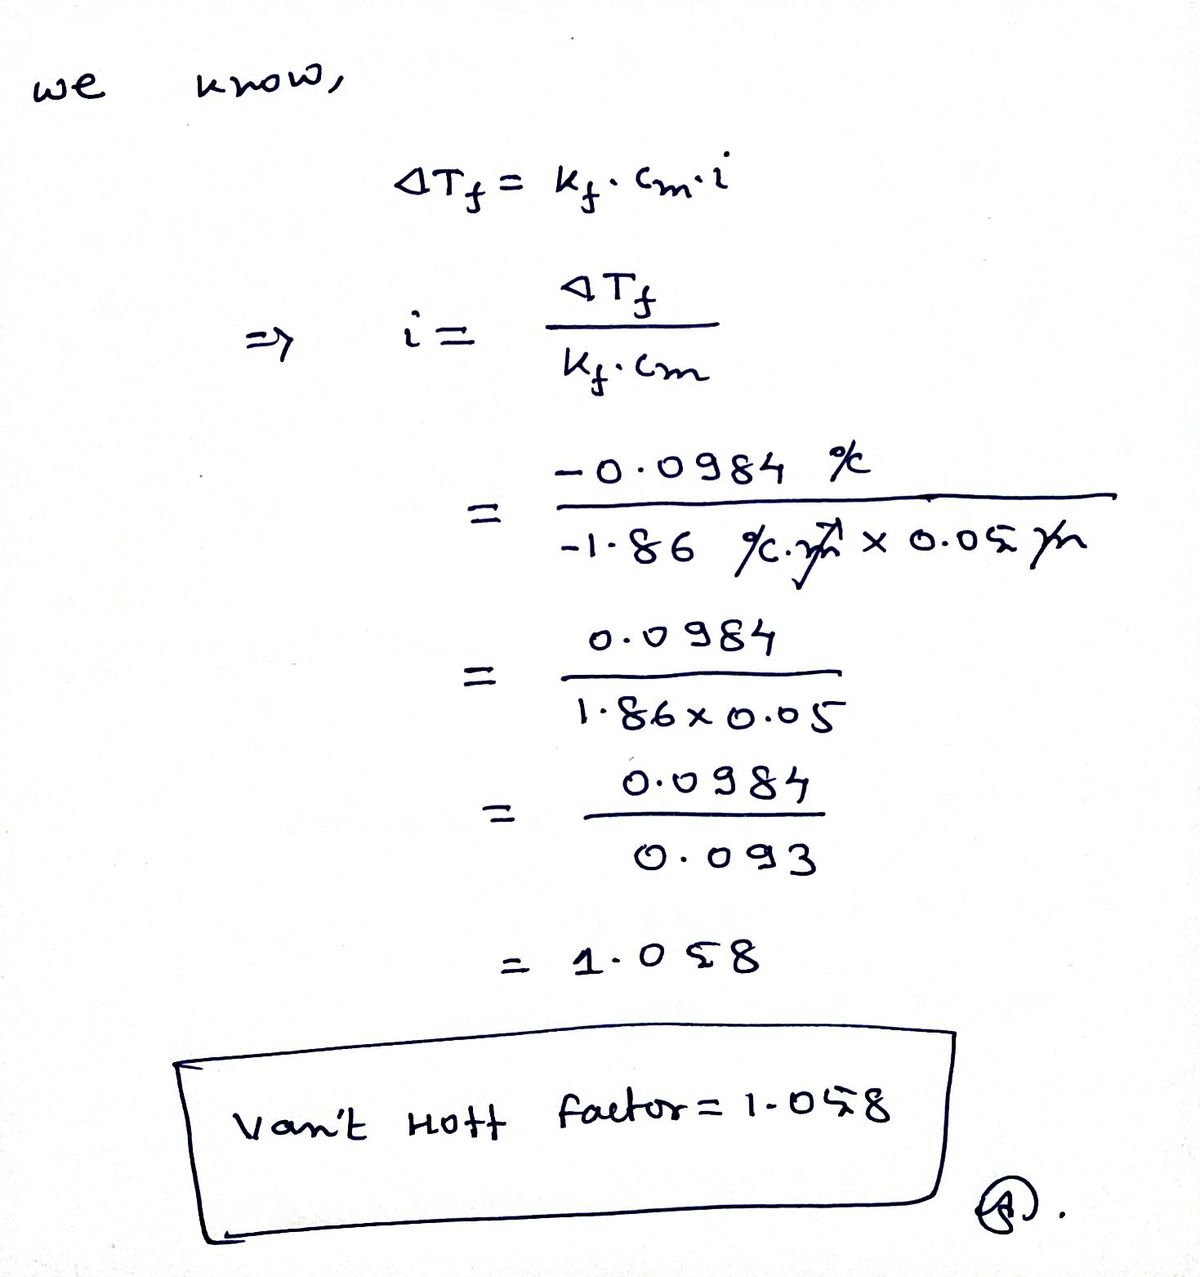 we know,
ΔTf = Kf · Cm · i
=> i = ΔTf / Kf · Cm
= -0.0984 °C / -1.86 °C · m⁻¹ × 0.05 m
= 0.0984 / 1.86 × 0.05
= 0.0984 / 0.093
= 1.058
Van't Hoff factor = 1.058